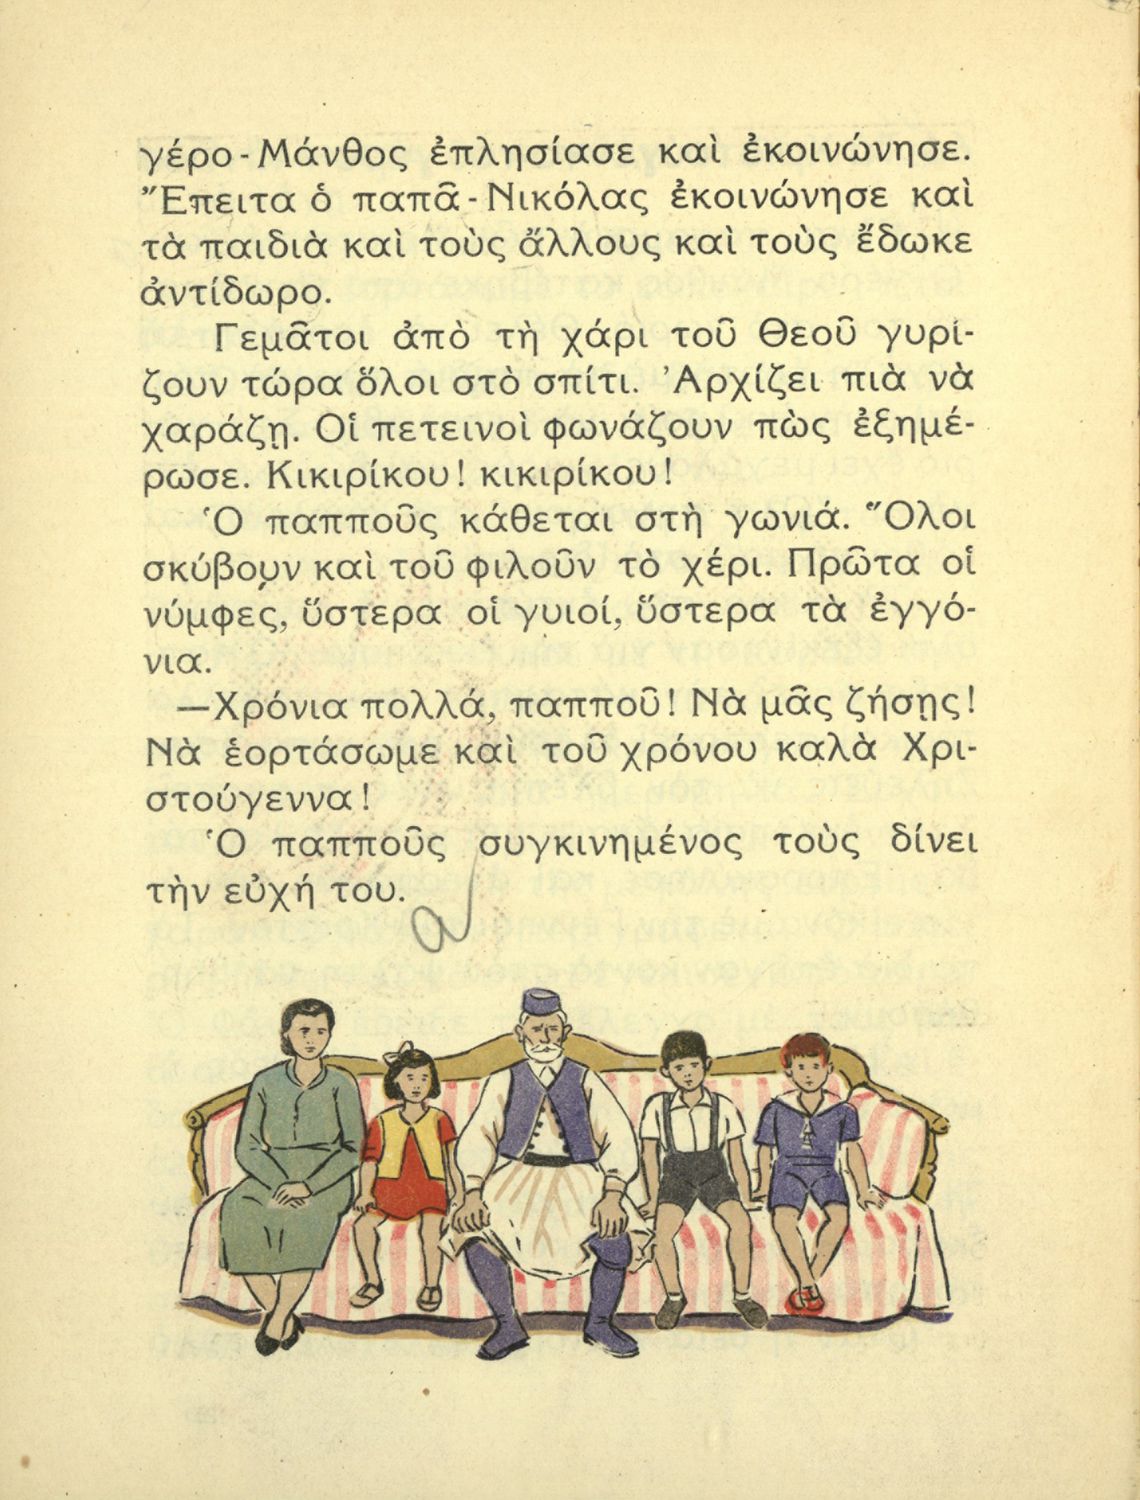 γέρο - Μάνθος ἐπλησίασε καὶ ἐκοινώνησε.
Ἔπειτα ὁ παπᾶ - Νικόλας ἐκοινώνησε καὶ
τὰ παιδιὰ καὶ τοὺς ἄλλους καὶ τοὺς ἔδωκε
ἀντίδωρο.
Γεμᾶτοι ἀπὸ τὴ χάρι τοῦ Θεοῦ γυρί-
ζουν τώρα ὅλοι στὸ σπίτι. Ἀρχίζει πιὰ νὰ
χαράζῃ. Οἱ πετεινοὶ φωνάζουν πὼς ἐξημέ-
ρωσε. Κικιρίκου! κικιρίκου!
Ὁ παπποῦς κάθεται στὴ γωνιά. Ὅλοι
σκύβουν καὶ τοῦ φιλοῦν τὸ χέρι. Πρῶτα οἱ
νύμφες, ὕστερα οἱ γυιοί, ὕστερα τὰ ἐγγό-
νια.
—Χρόνια πολλά, παπποῦ! Νὰ μᾶς ζήσῃς!
Νὰ ἑορτάσωμε καὶ τοῦ χρόνου καλὰ Χρι-
στούγεννα!
Ὁ παπποῦς συγκινημένος τοὺς δίνει
τὴν εὐχή του.